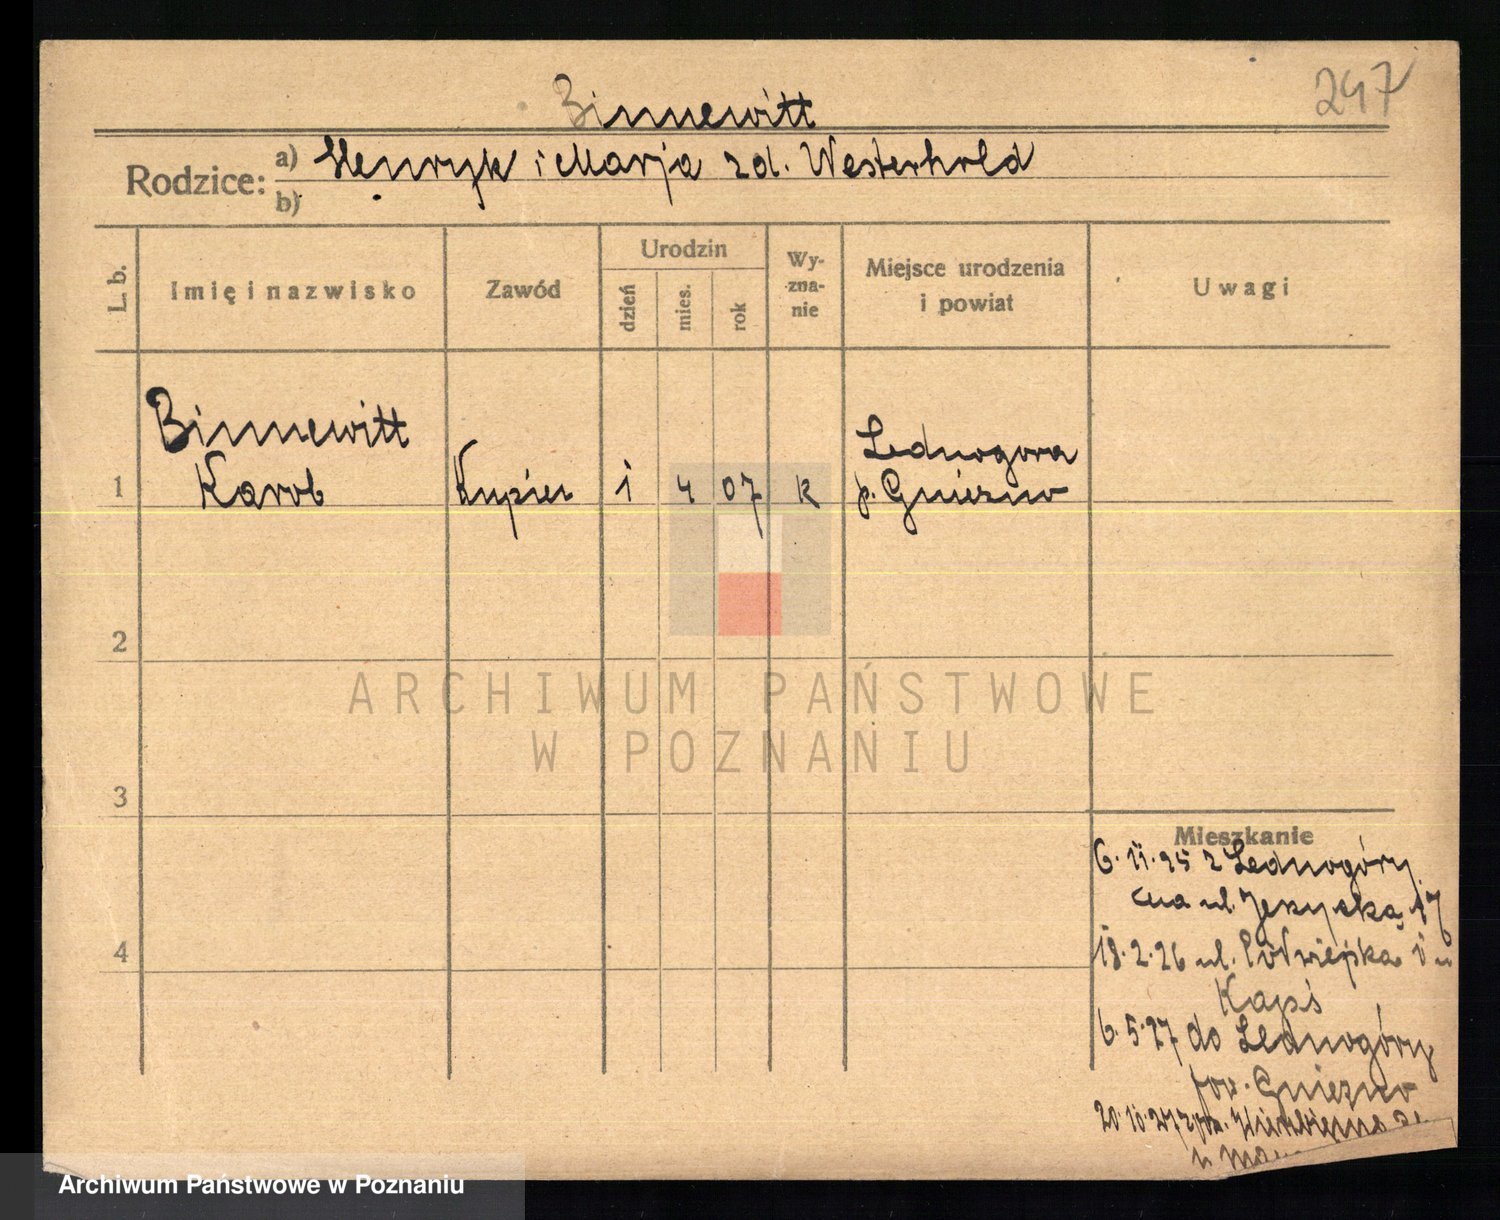 247
Binnewitt
Rodzice: a) Henryk i Marja zd. Westerhold
b)
L. b. Imię i nazwisko Zawód Urodzin dzień mies. rok Wy-zna-nie Miejsce urodzenia i powiat Uwagi
Binnewitt Lednogora
1 Karol Kupiec 1 4 07 k p. Gniezno
2
3
4
Mieszkanie
6.11.25 z Lednogóry
na ul.
18.2.26 ul.
6.5.27 do Lednogóry
pow. Gniezno
20.10.27
ARCHIWUM PAŃSTWOWE
W POZNANIU
Archiwum Państwowe w Poznaniu